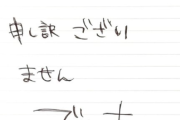 申し訳 ござい
ません